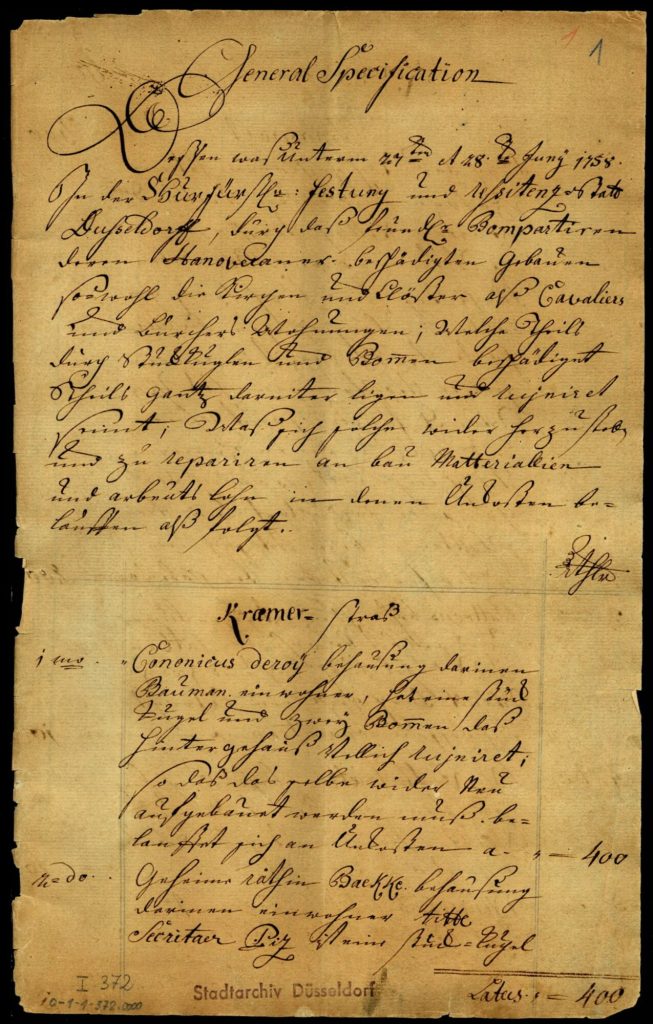 1 1
General Specification
Dessen was unterm 27ten et 28.ten Junÿ 1758.
In der Churfürstl: Festung und Resitenz Statt
Dusseldorff, durch daß feindl: Bompartiren
deren Hanoveraner beschädigten Gebäuen
sowohl die Kirchen und Clöster alß Cavaliers
und Bürchers Wohnungen; Welche Theils
durch Stuckkuglen und Bommen beschädiget
Theils gantz darniter ligen und rujniret
seint; Waß sich solche wider herzustellen
und zu repariren an bau Matteriallien
und arbeuts lohn in denen Unkosten be=
lauffen alß folgt.
Rthlr
Kræmer= straß
1 mo. Cononicus deroÿ behausung darinen
Bauman. einwohner, hat eine stück
Kugel und zweÿ Bommen das
Hintergehauß Vollich rujniret;
so das das selbe wider Neu
aufgebauet werden muß. be=
lauffet sich an Unkosten a. " = 400
2=do. Geheime räthin Baekke. behausung
darinen einwohner titte
Secritaer Piz stuck=Kugel
Latus " = 400
I 372
0-1-1-372.0000
Stadtarchiv Düsseldorf